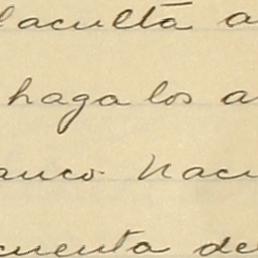 faculta a
haga los a
anco Naci
cuenta de